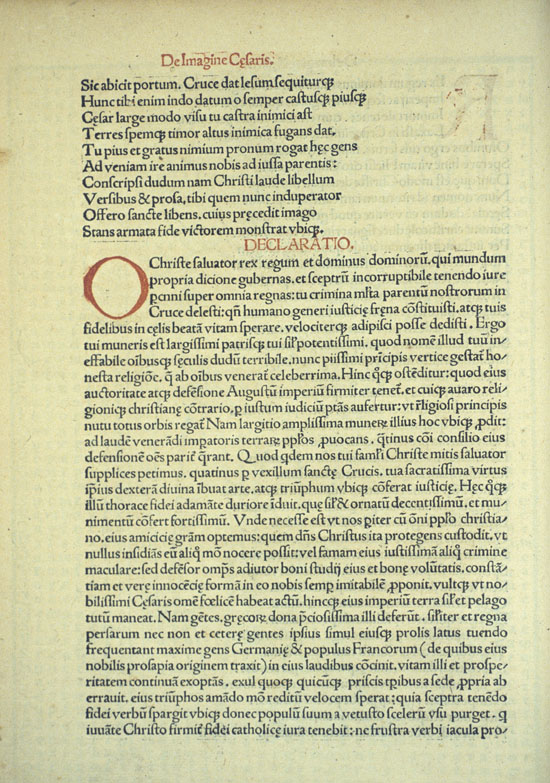 De Imagine Cęsaris.
Sic abicit portum. Cruce dat lesum sequiturqꝫ
Hunc tibi enim indo datum o semper castusqꝫ piusqꝫ
Cęsar large modo visu tu castra inimici ast
Terres spemqꝫ timor altus inimica fugans dat.
Tu pius et gratus nimium pronum rogat hęc gens
Ad veniam ire animos nobis ad iussa parentis:
Conscripsi dudum nam Christi laude libellum
Versibus & prosa, tibi quem nunc induperator
Offero sancte libens, cuius pręcedit imago
Stans armata fide victorem monstrat vbiqꝫ.
DECLARATIO.
O Christe saluator rex regum et dominus dominorū, qui mundum
propria dicione gubernas, et sceptrū incorruptibile tenendo iure
ꝑenni super omnia regnas: tu crimina ml̄ta parentū nostrorum in
Cruce delesti: qn̄ humano generi iusticię frena cōstituisti, atqꝫ tuis
fidelibus in cęlis beatā vitam sperare, velociterqꝫ adipisci posse dedisti. Ergo
tui muneris est largissimi patrisqꝫ tui sil̄ potentissimi, quod nomē illud tuū in⸗
effabile oībusqꝫ sęculis dudū terribile, nunc piissimi prīcipis vertice gestat̄ ho⸗
nesta religiōe, q̄ ab oībus venerat̄ celeberrima. Hinc qͥꝫ ostēditur: quod eius
auctoritate atqꝫ defēsione Augustū imperiū firmiter tenet̄, et cuiqꝫ auaro reli⸗
gioniqꝫ christianę cōtrario, ꝑ iustum iudiciū ptās aufertur: vt r̄ligiosi principis
nutu totus orbis regat̄ Nam largitio amplissima munerꝝ illius hoc vbiqꝫ ꝓdit:
ad laudē venerādi impatoris terrarꝝ pplos ꝓuocans, qͣtinus cōi consilio eius
defensionē oēs pariē q̄rant. Quod qdem nos tui famli Christe mitis saluator
supplices petimus, quatinus ꝑ vexillum sanctę Crucis, tua sacratissima virtus
ipius dexterā diuina ībuat arte, atqꝫ triumphum vbiqꝫ cōferat iusticię. Hęc qͥꝫ
illū thorace fidei adamāte duriore īduit, que sil̄ & ornatū decentissimū, et mu⸗
nimentū cōfert fortissimū. Vnde necesse est vt nos ꝑiter cū ōni pplo christia⸗
no, eius amicicię grām optemus: quem dn̄s Christus ita protegens custodit, vt
nullus insidiās eū aliqͦ mō nocere possit: vel famam eius iustissimā aliqͦ crimine
maculare: sed defēsor omps adiutor boni studij eius et bonę volūtatis, constā⸗
tiam et verę innocēcię formā in eo nobis semp imitabilē ꝓponit, vultqꝫ vt no⸗
bilissimi Cęsaris omē fœlicē habeat actū, hincqꝫ eius imperiū terra sil̄ et pelago
tutū maneat. Nam gētes, gręcorꝝ dona p̄ciosissima illi deferūt, sil̄iter et regna
persarum nec non et ceterę gentes ipsius simul eiusqꝫ prolis latus tuendo
frequentant maxime gens Germanię & populus Francorum (de quibus eius
nobilis prosapia originem traxit) in eius laudibus cōcinit, vitam illi et prospe⸗
ritatem continuā exoptās, exul quoqꝫ quicūqꝫ priscis tpibus a sede ꝓpria ab
errauit, eius triūphos amādo mō reditū velocem sperat: quia sceptra tenēdo
fidei verbū spargit vbiqꝫ donec populū suum a vetusto scelerū vsu purget, q
iuuāte Christo firmit̄ fidei catholicę iura tenebit: ne frustra verbi iacula pro⸗